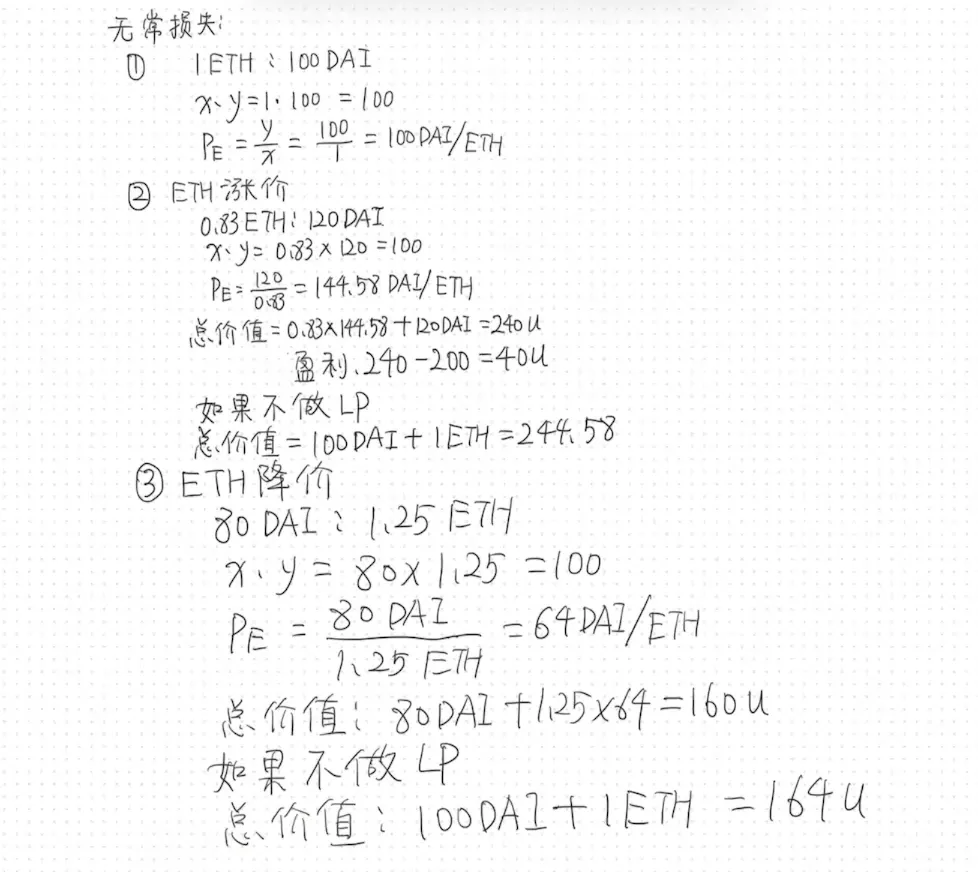 无常损失:
① 1ETH : 100DAI
x·y=1·100 =100
PE = y/x = 100/1 = 100DAI/ETH
② ETH涨价
0.83ETH: 120DAI
x·y= 0.83×120 =100
PE= 120/0.83 = 144.58 DAI/ETH
总价值=0.83×144.58+120DAI=240U
盈利.240-200=40U
如果不做LP
总价值=100DAI+1ETH=244.58
③ ETH降价
80 DAI : 1.25 ETH
x·y = 80×1.25 =100
PE = 80 DAI/1.25 ETH = 64DAI/ETH
总价值: 80DAI+1.25×64=160U
如果不做LP
总价值: 100DAI+1ETH =164U